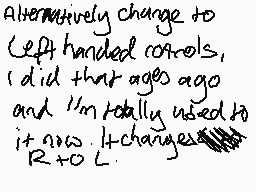 Alternatively change to
left handed controls,
i did that ages ago
and I'm totally used to
it now. It changes
R to L.